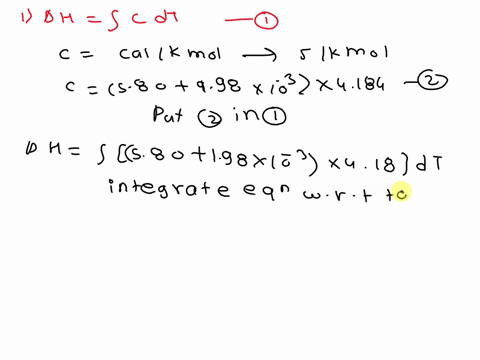 1) ΔH = ∫ C dT —①
C = cal/kmol → 5/kmol
C = (5.80 + 9.98 × 10⁻³) × 4.184 —②
Put ② in ①
ΔH = ∫ [(5.80 + 1.98 × 10⁻³) × 4.18] dT
integrate eqn w.r.t to